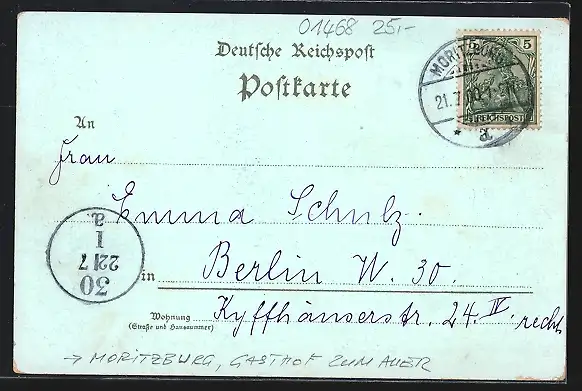 01468 25,-
Deutsche Reichspost
Postkarte
5 5
REICHSPOST
MORITZBURG
21.7.
a
An
Frau
Emma Schulz.
in Berlin W. 30.
Wohnung
(Straße und Hausnummer)
Kyffhäuserstr. 24. IV. rechts
30
22/7
1
a.
→ MORITZBURG, GASTHOF ZUM AUER